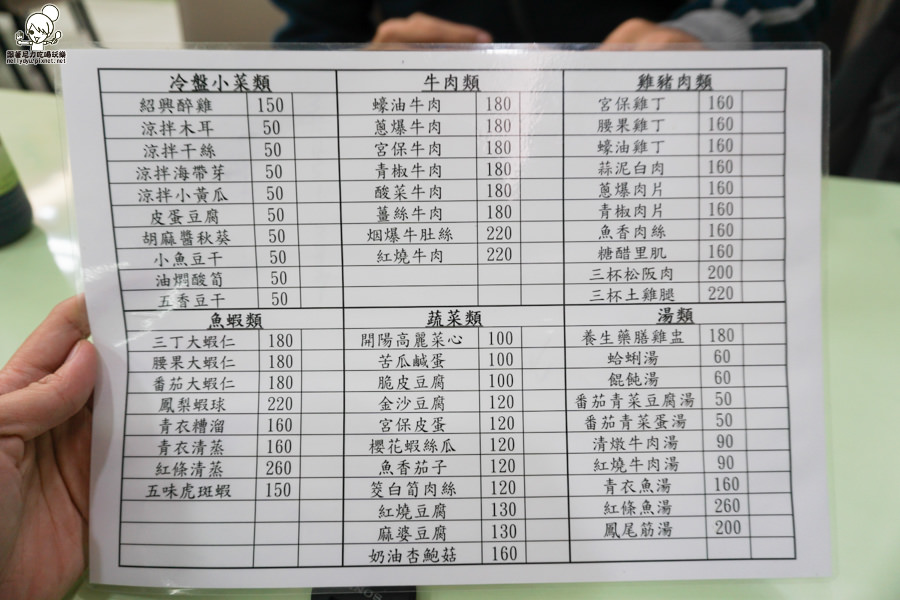 跟著尼力吃喝玩樂
nellydyu.pixnet.net
冷盤小菜類
紹興醉雞 150
涼拌木耳 50
涼拌干絲 50
涼拌海帶芽 50
涼拌小黃瓜 50
皮蛋豆腐 50
胡麻醬秋葵 50
小魚豆干 50
油燜酸筍 50
五香豆干 50
牛肉類
蠔油牛肉 180
蔥爆牛肉 180
宮保牛肉 180
青椒牛肉 180
酸菜牛肉 180
薑絲牛肉 180
烟爆牛肚絲 220
紅燒牛肉 220
雞豬肉類
宮保雞丁 160
腰果雞丁 160
蠔油雞丁 160
蒜泥白肉 160
蔥爆肉片 160
青椒肉片 160
魚香肉絲 160
糖醋里肌 160
三杯松阪肉 200
三杯土雞腿 220
魚蝦類
三丁大蝦仁 180
腰果大蝦仁 180
番茄大蝦仁 180
鳳梨蝦球 220
青衣糟溜 160
青衣清蒸 160
紅條清蒸 260
五味虎斑蝦 150
蔬菜類
開陽高麗菜心 100
苦瓜鹹蛋 100
脆皮豆腐 100
金沙豆腐 120
宮保皮蛋 120
櫻花蝦絲瓜 120
魚香茄子 120
筊白筍肉絲 120
紅燒豆腐 130
麻婆豆腐 130
奶油杏鮑菇 160
湯類
養生藥膳雞盅 180
蛤蜊湯 60
餛飩湯 60
番茄青菜豆腐湯 50
番茄青菜蛋湯 50
清燉牛肉湯 90
紅燒牛肉湯 90
青衣魚湯 160
紅條魚湯 260
鳳尾筋湯 200